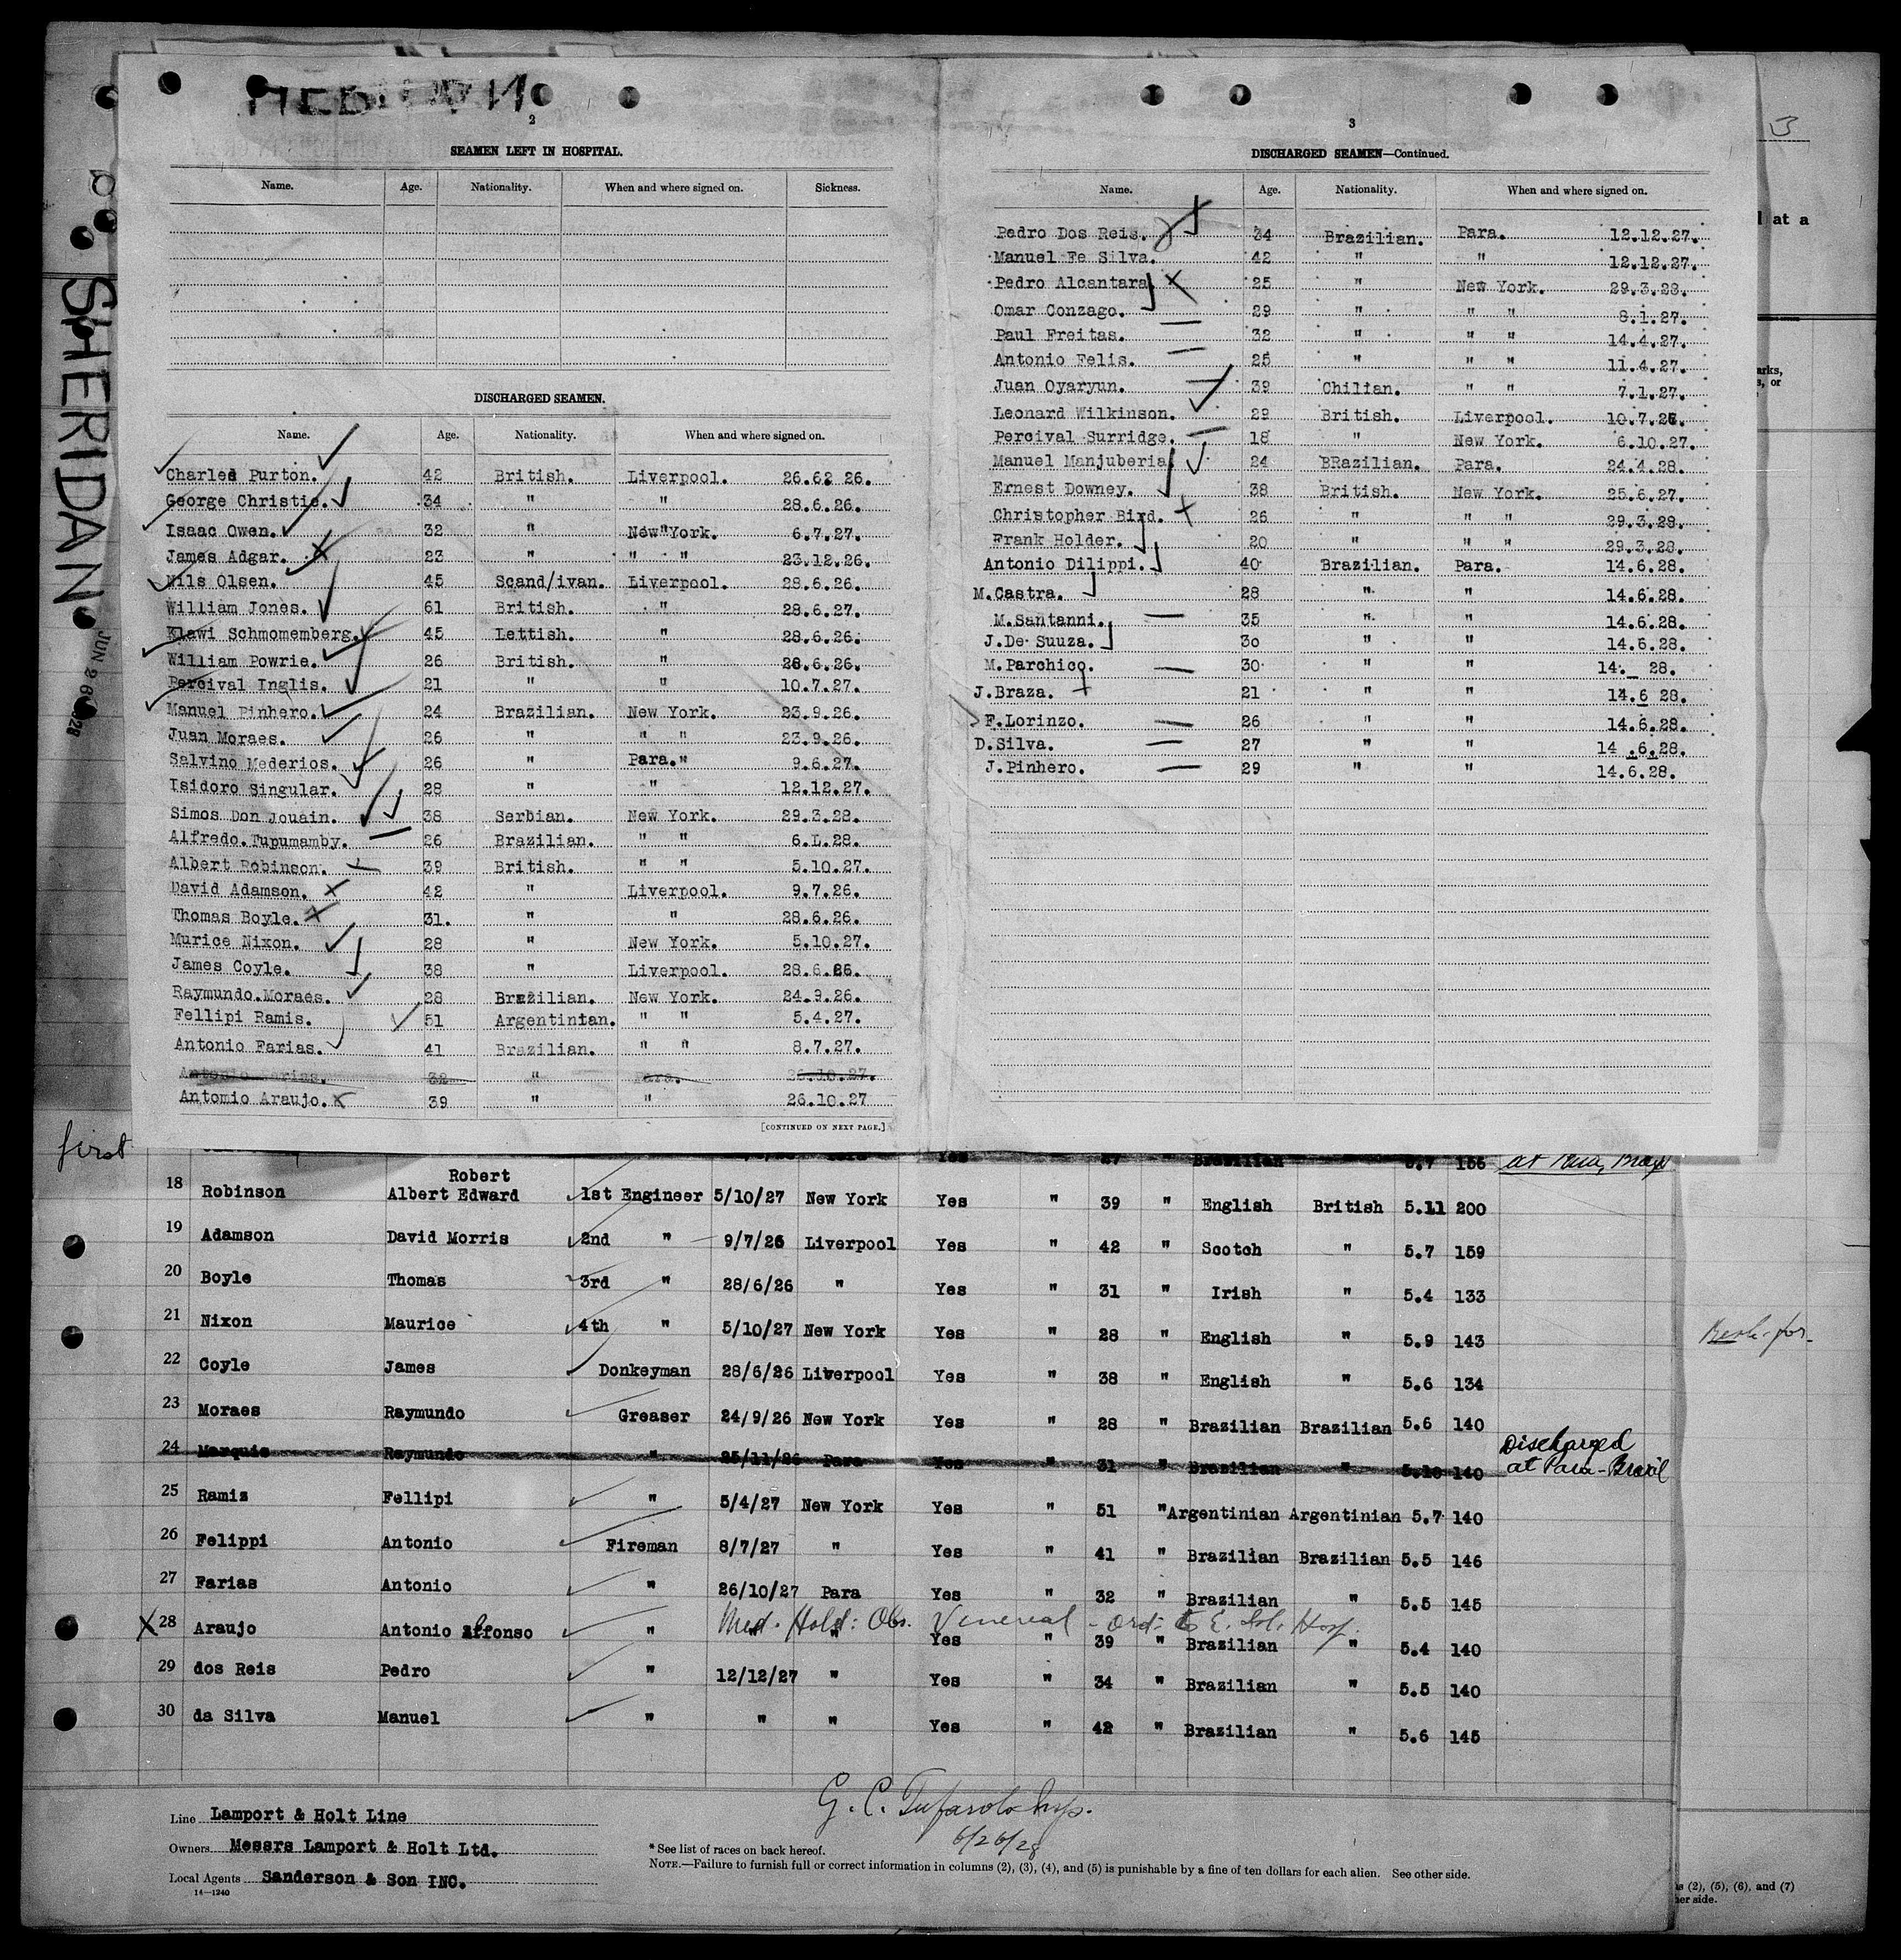 SHERIDAN
JUN 26 1928
2
SEAMEN LEFT IN HOSPITAL.
Name. Age. Nationality. When and where signed on. Sickness.
DISCHARGED SEAMEN.
Name. Age. Nationality. When and where signed on.
Charles Purton. 42 British. Liverpool. 26.62 26.
George Christie. 34 " " 28.6.26.
Isaac Owen. 32 " New York. 6.7.27.
James Adgar. 23 " " " 23.12.26.
Nils Olsen. 45 Scand/ivan. Liverpool. 28.6.26.
William Jones. 61 British. " 28.6.27.
Klawi Schmomemberg. 45 Lettish. " 28.6.26.
William Powrie. 26 British. " 28.6.26.
Percival Inglis. 21 " " 10.7.27.
Manuel Pinhero. 24 Brazilian. New York. 23.9.26.
Juan Moraes. 26 " " " 23.9.26.
Salvino Mederios. 26 " Para." 9.6.27.
Isidoro Singular. 28 " " 12.12.27.
Simos Don Jouain. 38 Serbian. New York. 29.3.28.
Alfredo.Tupumamby. 26 Brazilian. " " 6.L.28.
Albert Robinson. 39 British. " " 5.10.27.
David Adamson. 42 " Liverpool. 9.7.26.
Thomas Boyle. 31. " " 28.6.26.
Murice Nixon. 28 " New York. 5.10.27.
James Coyle. 38 " Liverpool. 28.6.26.
Raymundo.Moraes. 28 Brazilian. New York. 24.9.26.
Fellipi Ramis. 51 Argentinian. " " 5.4.27.
Antonio Farias. 41 Brazilian. " " 8.7.27.
Antonio Farias. 32 " Para. 26.10.27.
Antomio Araujo. 39 " " 26.10.27
[CONTINUED ON NEXT PAGE.]
3
DISCHARGED SEAMEN—Continued.
Name. Age. Nationality. When and where signed on.
Pedro Dos Reis. 34 Brazilian. Para. 12.12.27.
Manuel Fe Silva. 42 " " 12.12.27.
Pedro Alcantara 25 " New York. 29.3.28.
Omar Conzago. 29 " " " 8.1.27.
Paul Freitas. 32 " " " 14.4.27.
Antonio Felis. 25 " " " 11.4.27.
Juan Oyaryun. 39 Chilian. " " 7.1.27.
Leonard Wilkinson. 29 British. Liverpool. 10.7.26.
Percival Surridge. 18 " New York. 6.10.27.
Manuel Manjuberia 24 BRazilian. Para. 24.4.28.
Ernest Downey. 38 British. New York. 25.6.27.
Christopher Bird. 26 " " " 29.3.28.
Frank Holder. 20 " " " 29.3.28.
Antonio Dilippi. 40 Brazilian. Para. 14.6.28.
M.Castra. 28 " " 14.6.28.
M.Santanni. 35 " " 14.6.28.
J.De Suuza. 30 " " 14.6.28.
M.Parchico. 30 " " 14. 28.
J.Braza. 21 " " 14.6 28.
F.Lorinzo. 26 " " 14.6.28.
D.Silva. 27 " " 14 .6.28.
J.Pinhero. 29 " " 14.6.28.
3
at a
arks,
s, or
first
Yes 27 Brazilian 5.7 156 at Para, Brazil
18 Robinson Robert Albert Edward 1st Engineer 5/10/27 New York Yes " 39 " English British 5.11 200
19 Adamson David Morris 2nd " 9/7/26 Liverpool Yes " 42 " Scotch " 5.7 159
20 Boyle Thomas 3rd " 28/6/26 " Yes " 31 " Irish " 5.4 133
21 Nixon Maurice 4th " 5/10/27 New York Yes " 28 " English " 5.9 143
22 Coyle James Donkeyman 28/6/26 Liverpool Yes " 38 " English " 5.6 134
23 Moraes Raymundo Greaser 24/9/26 New York Yes " 28 " Brazilian Brazilian 5.6 140
24 Marquis Raymundo " 25/11/26 Para Yes " 31 " Brazilian " 5.10 140 Discharged at Para-Brazil
25 Ramis Fellipi " 5/4/27 New York Yes " 51 " Argentinian Argentinian 5.7 140
26 Felippi Antonio Fireman 8/7/27 " Yes " 41 " Brazilian Brazilian 5.5 146
27 Farias Antonio " 26/10/27 Para Yes " 32 " Brazilian " 5.5 145
Med. Hold: Obs. Venereal - Ord. to E. Isl. Hosp.
X 28 Araujo Antonio Affonso " " " Yes " 39 " Brazilian " 5.4 140
29 dos Reis Pedro " 12/12/27 " Yes " 34 " Brazilian " 5.5 140
30 da Silva Manuel " " " Yes " 42 " Brazilian " 5.6 145
Line Lamport & Holt Line
Owners Messrs Lamport & Holt Ltd.
Local Agents Sanderson & Son INC.
14—1240
G. C. Tufarolo Insp.
6/26/28
* See list of races on back hereof.
NOTE.—Failure to furnish full or correct information in columns (2), (3), (4), and (5) is punishable by a fine of ten dollars for each alien. See other side.
s (2), (5), (6), and (7)
her side.